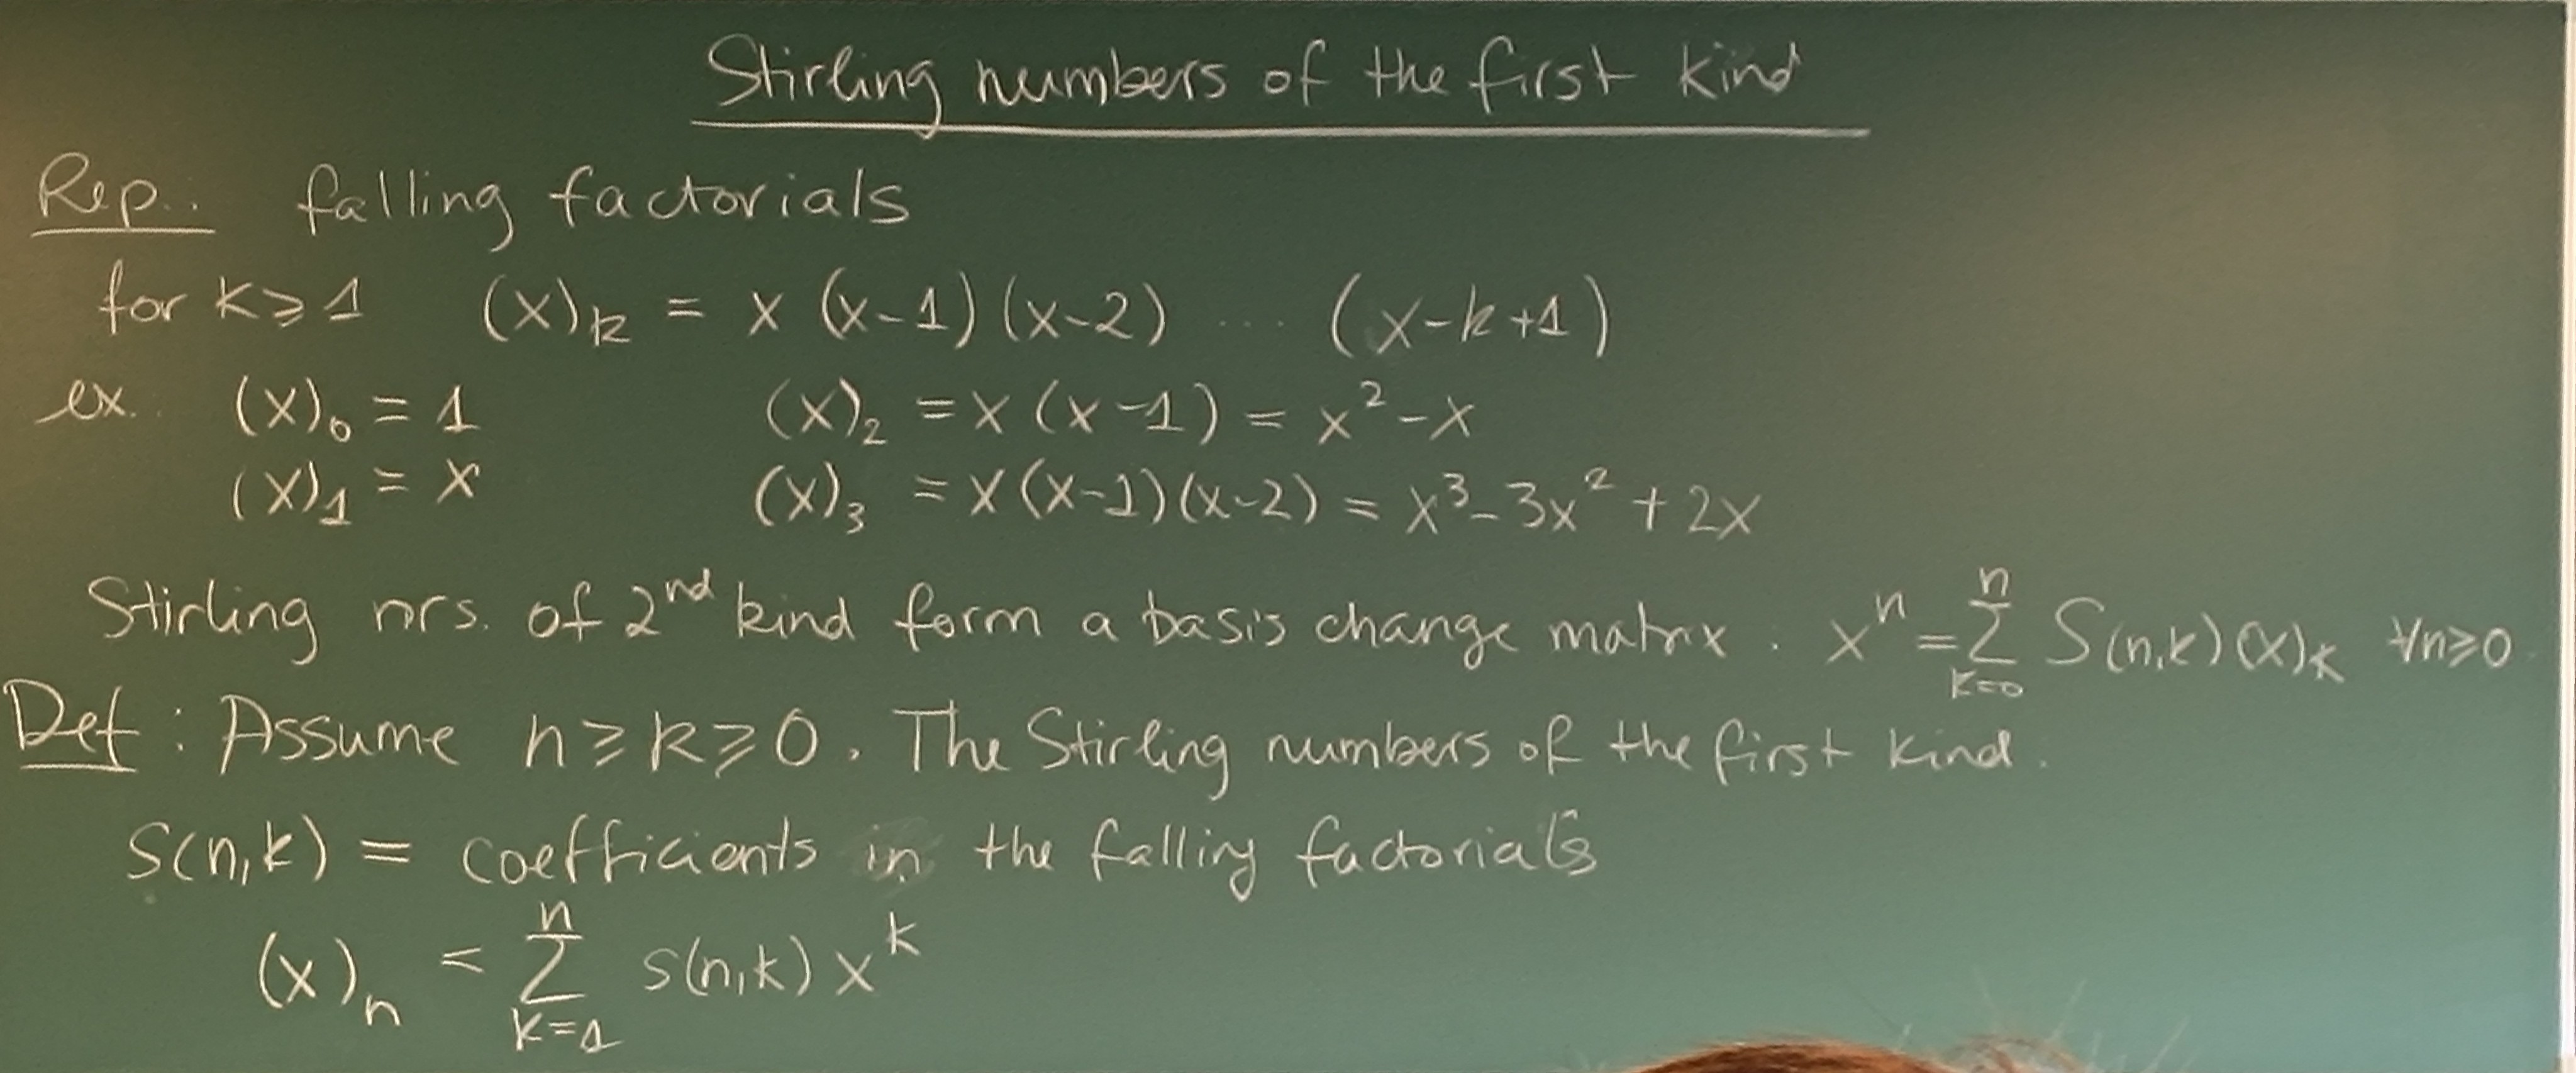 Stirling numbers of the first kind
Rep.. falling factorials
for k ⩾ 1 (x)ₖ = x (x-1) (x-2) ... (x-k+1)
ex. (x)₀ = 1 (x)₂ = x (x-1) = x² - x
(x)₁ = x (x)₃ = x (x-1) (x-2) = x³ - 3x² + 2x
Stirling nrs. of 2ⁿᵈ kind form a basis change matrix. xⁿ = ∑_{k=0}^{n} S(n,k) (x)ₖ ∀n⩾0
Def: Assume n ⩾ k ⩾ 0. The Stirling numbers of the first kind.
s(n,k) = coefficients in the falling factorials
(x)ₙ = ∑_{k=1}^{n} s(n,k) xᵏ